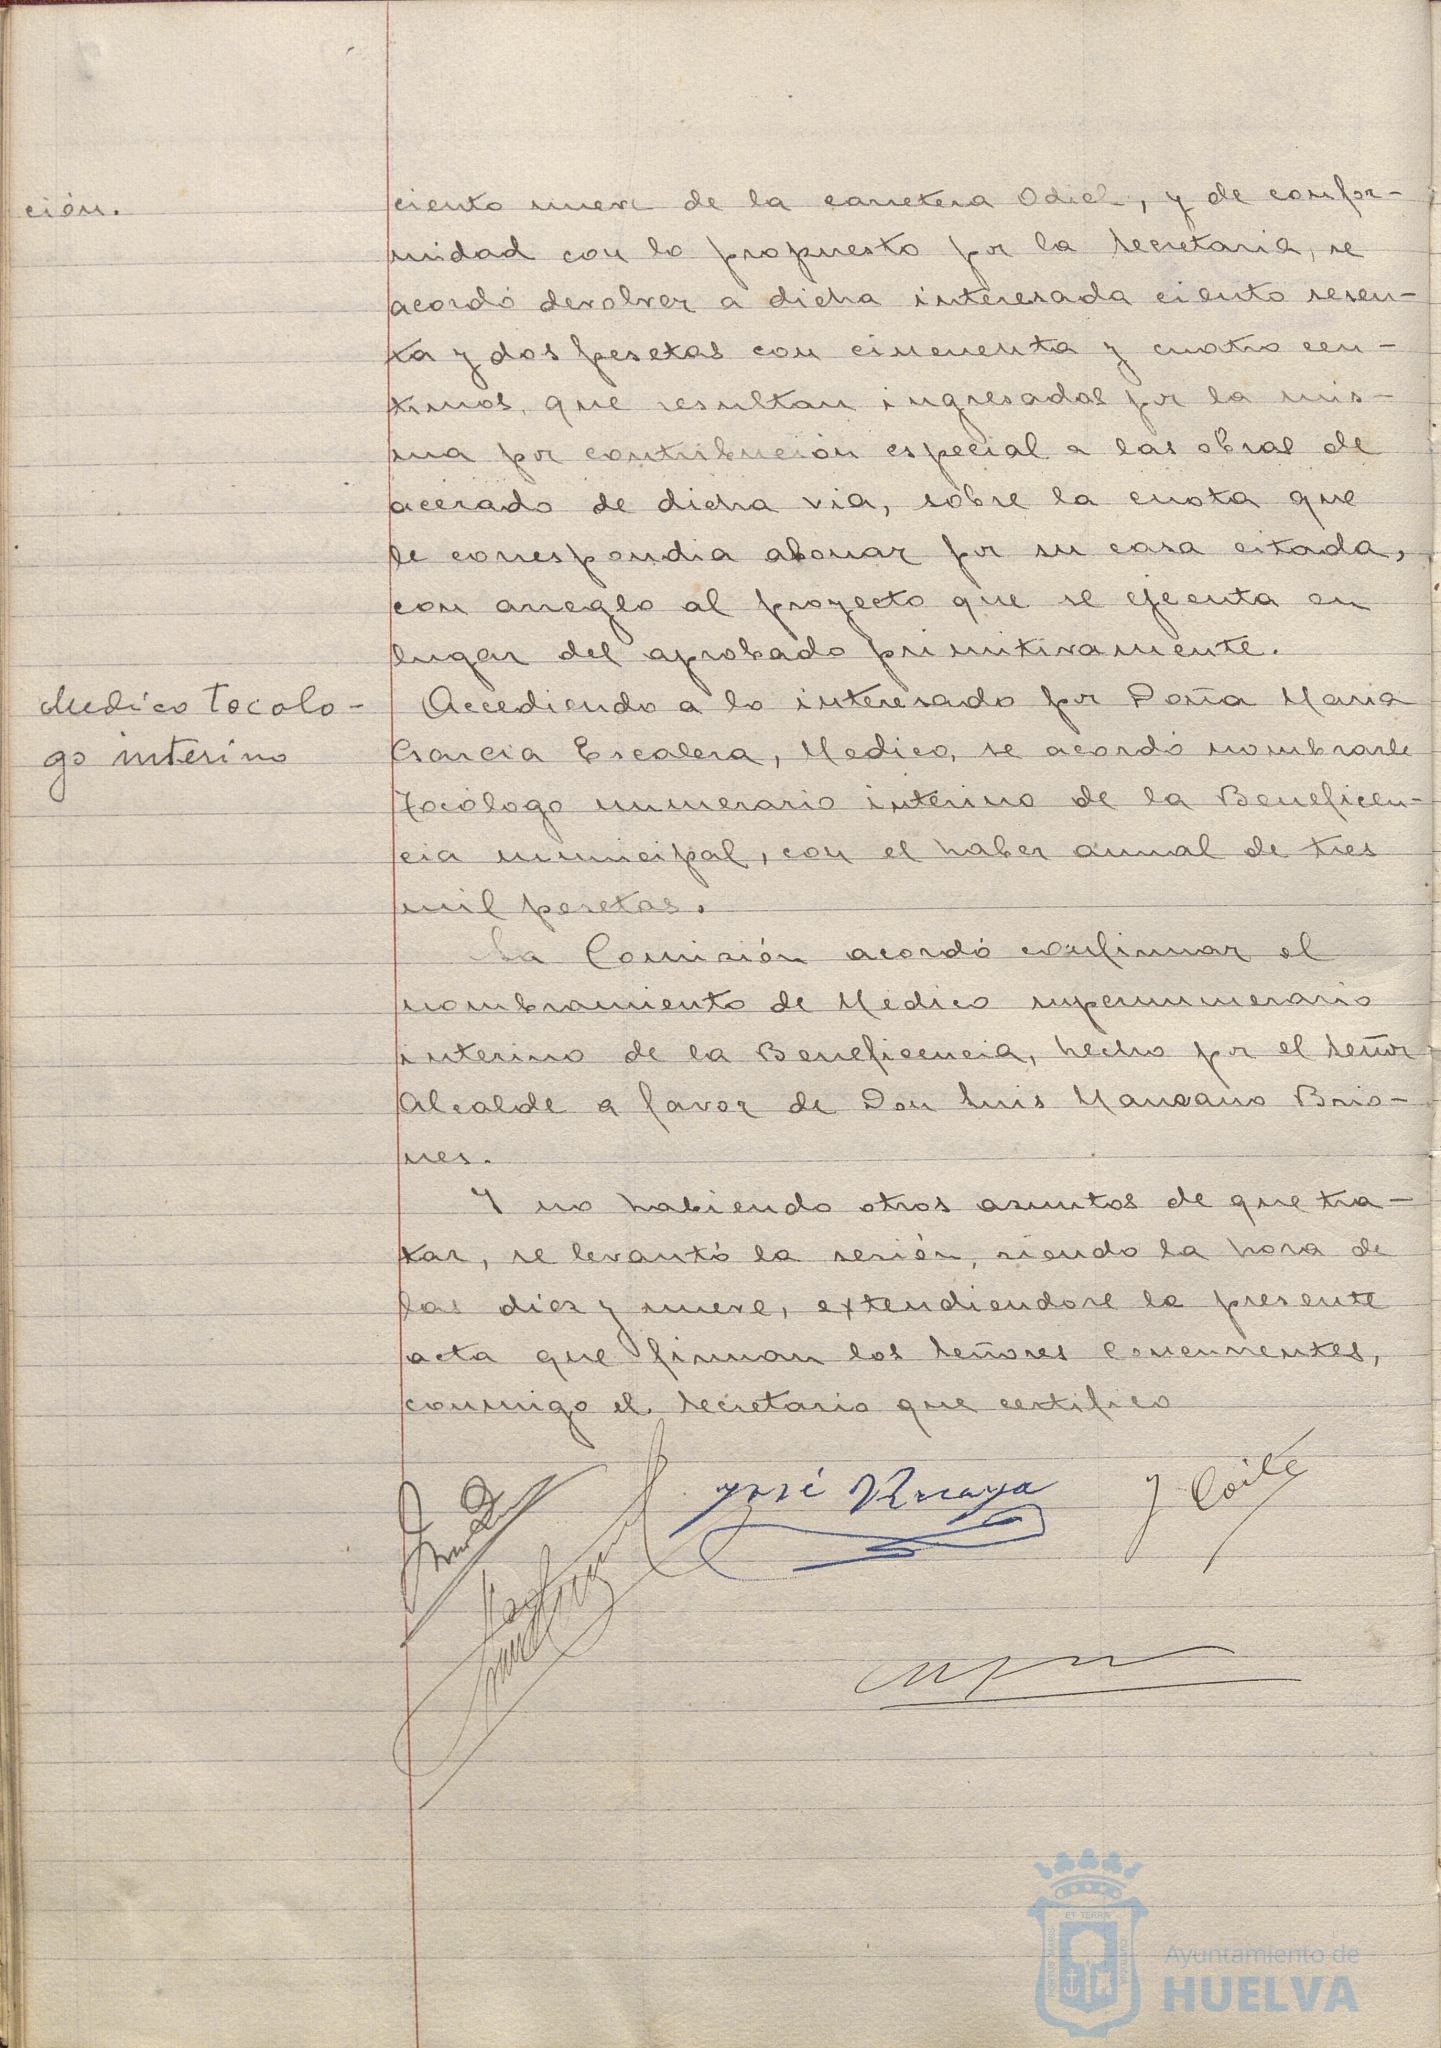 ción.
ciento nueve de la carretera Odiel, y de confor-
midad con lo propuesto por la Secretaria, se
acordó devolver a dicha interesada ciento sesen-
ta y dos pesetas con cincuenta y cuatro cen-
timos, que resultan ingresados por la mis-
ma por contribución especial a las obras de
acerado de dicha via, sobre la cuota que
le correspondia abonar por su casa citada,
con arreglo al proyecto que se ejecuta en
lugar del aprobado primitivamente.
Medico Tocolo-
go interino
Accediendo a lo interesado por Doña Maria
Garcia Escalera, Medico, se acordó nombrarle
Tocólogo numerario interino de la Beneficen-
cia municipal, con el haber anual de tres
mil pesetas.
La Comisión acordó confirmar el
nombramiento de Médico supernumerario
interino de la Beneficencia, hecho por el Señor
Alcalde a favor de Don Luis Manzano Brio-
nes.
Y no habiendo otros asuntos de que tra-
tar, se levantó la sesión, siendo la hora de
las diez y nueve, extendiendose la presente
acta que firman los Señores Concurrentes,
conmigo el Secretario que certifico
José
Ayuntamiento de
HUELVA